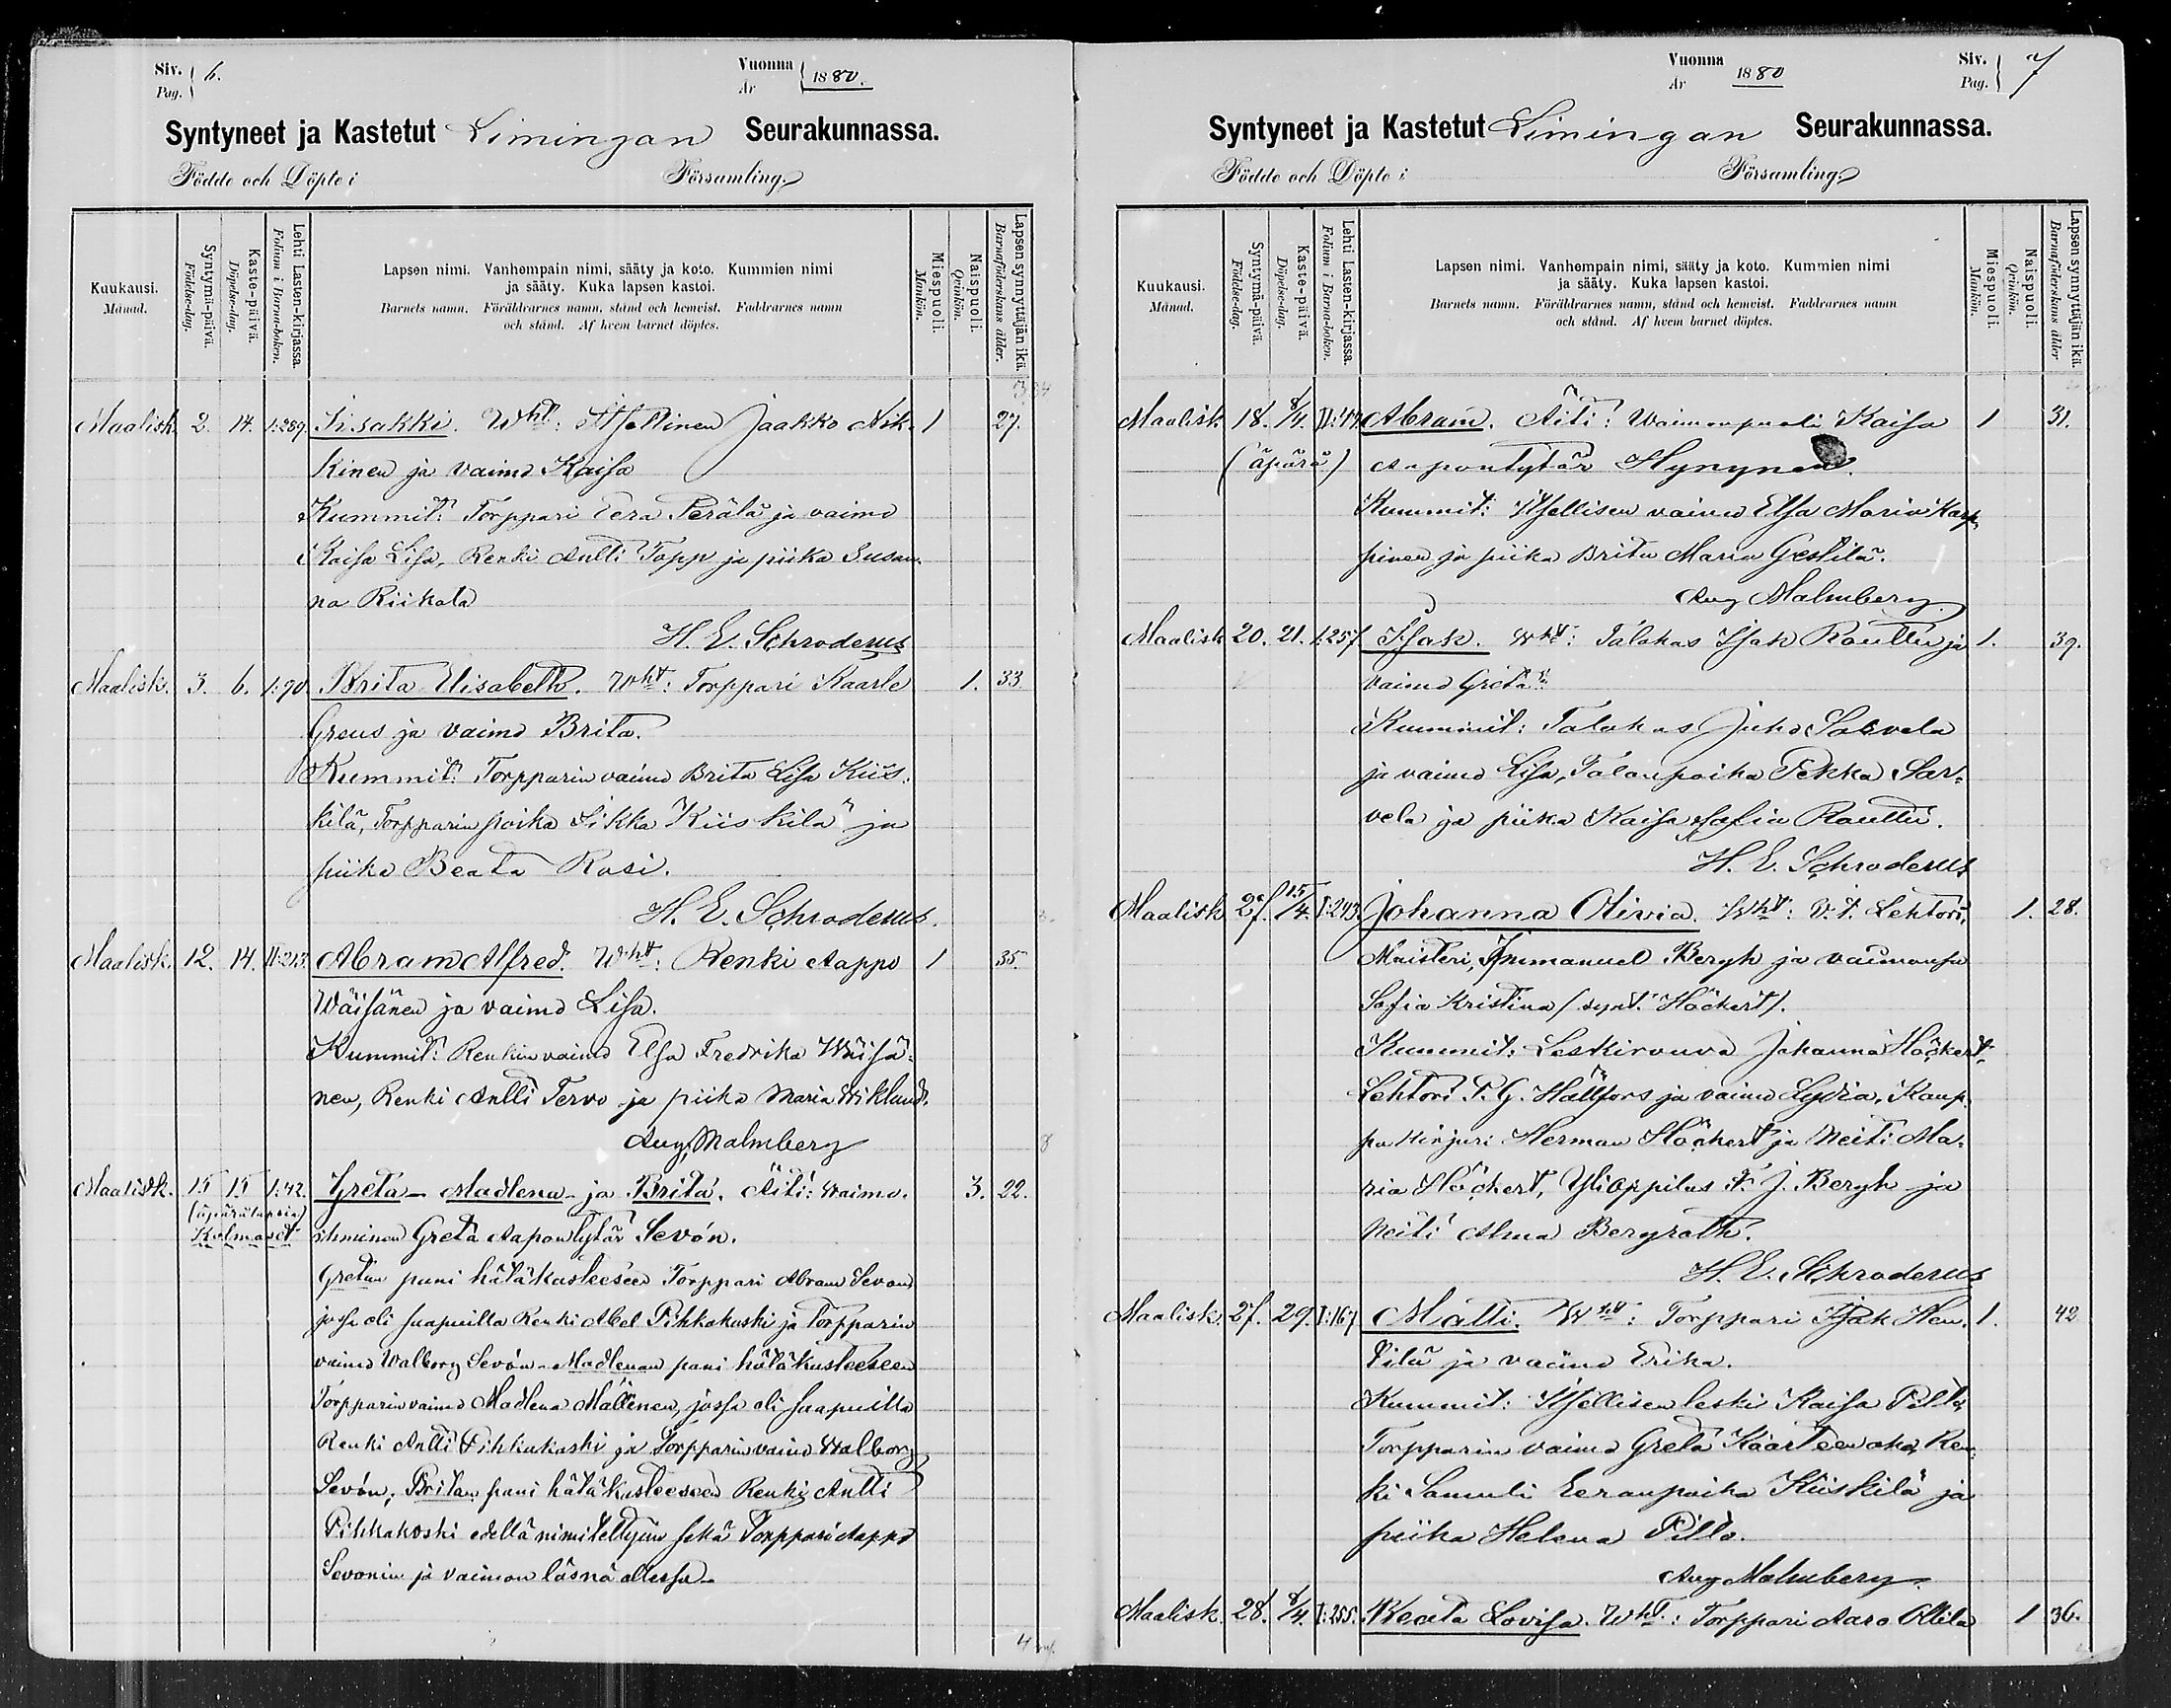 Siv. 6.
Pag.
Vuonna 1880.
År
Syntyneet ja Kastetut Limingan Seurakunnassa.
Födde och Döpte i Församling.
Kuukausi.
Månad.
Syntymä-päivä.
Födelse-dag.
Kaste-päivä.
Döpelse-dag.
Lehti Lasten-kirjassa.
Folium i Barna-boken.
Lapsen nimi. Vanhempain nimi, sääty ja koto. Kummien nimi
ja sääty. Kuka lapsen kastoi.
Barnets namn. Föräldrarnes namn, stånd och hemvist. Faddrarnes namn
och stånd. Af hvem barnet döptes.
Miespuoli.
Mankön.
Naispuoli.
Qvinkön.
Lapsen synnyttäjän ikä.
Barnaföderskans ålder.
Maalisk. 2. 14. I:289. Iisakki. Wht: Itsellinen Jaakko Nik- 1 27.
kinen ja vaimo Kaisa
Kummit: Torppari Eera Perälä ja vaimo
Kaisa Lisa, Renki Antti Topp ja piika Susan-
na Riikola
H. E. Schroderus
Maalisk. 3. 6. I:90 Brita Elisabeth. Wht: Torppari Kaarle 1. 33
Greus ja vaimo Brita.
Kummit: Torpparin vaimo Brita Lisa Kiis-
kilä, Torpparin poika Kiiskilä ja
piika Beata Rasi.
H. E. Schroderus.
Maalisk. 12. 14. II:213. Abram Alfred. Wht: Renki Aappo 1 35.
Wäisänen ja vaimo Lisa.
Kummit: Renkin vaimo Elsa Fredrika Wäisä-
nen, Renki Antti Tervo ja piika Maria Wiklund.
Aug. Malmberg
Maalisk. 15 15 I:42. Greta - Madlena - ja Brita. Äiti: Waimo- 3. 22.
(äpärälapsia)
Kolmoset ihminen Greta Aapontytär Sevón.
Gretan pani hätäkasteeseen Torppari Abram Sevon
jossa oli saapuilla Renki Abel Pihkakoski ja Torpparin
vaimo Walborg Sevón - Madlenan pani hätäkasteeseen
Torpparin vaimo Madlena Määttinen, jossa oli saapuilla
Renki Antti Pihkakoski ja Torpparin vaimo Walborg
Sevón; Britan pani hätäkasteeseen Renki Antti
Pihkakoski edellä nimitettyjen sekä Torppari Aappo
Sevonin ja vaimon läsnä ollessa -
Vuonna 1880
År
Siv. 7
Pag.
Syntyneet ja Kastetut Limingan Seurakunnassa.
Födde och Döpte i Församling.
Kuukausi.
Månad.
Syntymä-päivä.
Födelse-dag.
Kaste-päivä.
Döpelse-dag.
Lehti Lasten-kirjassa.
Folium i Barna-boken.
Lapsen nimi. Vanhempain nimi, sääty ja koto. Kummien nimi
ja sääty. Kuka lapsen kastoi.
Barnets namn. Föräldrarnes namn, stånd och hemvist. Faddrarnes namn
och stånd. Af hvem barnet döptes.
Miespuoli.
Mankön.
Naispuoli.
Qvinkön.
Lapsen synnyttäjän ikä.
Barnaföderskans ålder
Maalisk 18. 8/4. Abram. Äiti: Waimonpuoli Kaisa 1 31.
(äpärä) Aapontytär Hynynen.
Kummit: Itsellisen vaimo Elsa Maria Karp-
pinen ja piika Brita Maria Gestilä.
Aug Malmberg
Maalisk 20. 21. I:257 Isak. Wht: Talokas Isak Rauttu ja 1. 39.
vaimo Greta.
Kummit: Talokas Juho Sarvela
ja vaimo Lisa, Talonpoika Pekka Sar-
vela ja piika Kaisa Sofia Rauttu.
H. E. Schroderus
Maalisk 27. 15/4. I:243. Johanna Olivia. Wht: V. t. Lehtori, 1. 28.
Maisteri, Immanuel Bergh ja vaimonsa
Sofia Kristina (synt. Höckert).
Kummit: Leskirouva Johanna Höckert,
Lehtori P. G. Hällfors ja vaimo Lydia, Kaup-
pa kirjuri Herman Höckert ja Neiti Ma-
ria Höckert, Ylioppilas F. J. Bergh ja
Neiti Alma Bergroth.
H. E. Schroderus
Maalisk. 27. 29. I:167 Matti. Wht: Torppari Isak Hen- 1. 42
tilä ja vaimo Erika.
Kummit: Itsellisen leski Kaisa Pitto,
Torpparin vaimo Greta Kaarteenaho, Ren-
ki Samuli Eeranpoika Kiiskilä ja
piika Helena Pitto.
Aug Malmberg.
Maalisk. 28. 8/4. I:255. Beata Lovisa. Wht.: Torppari Aaro Ollila 1 36.